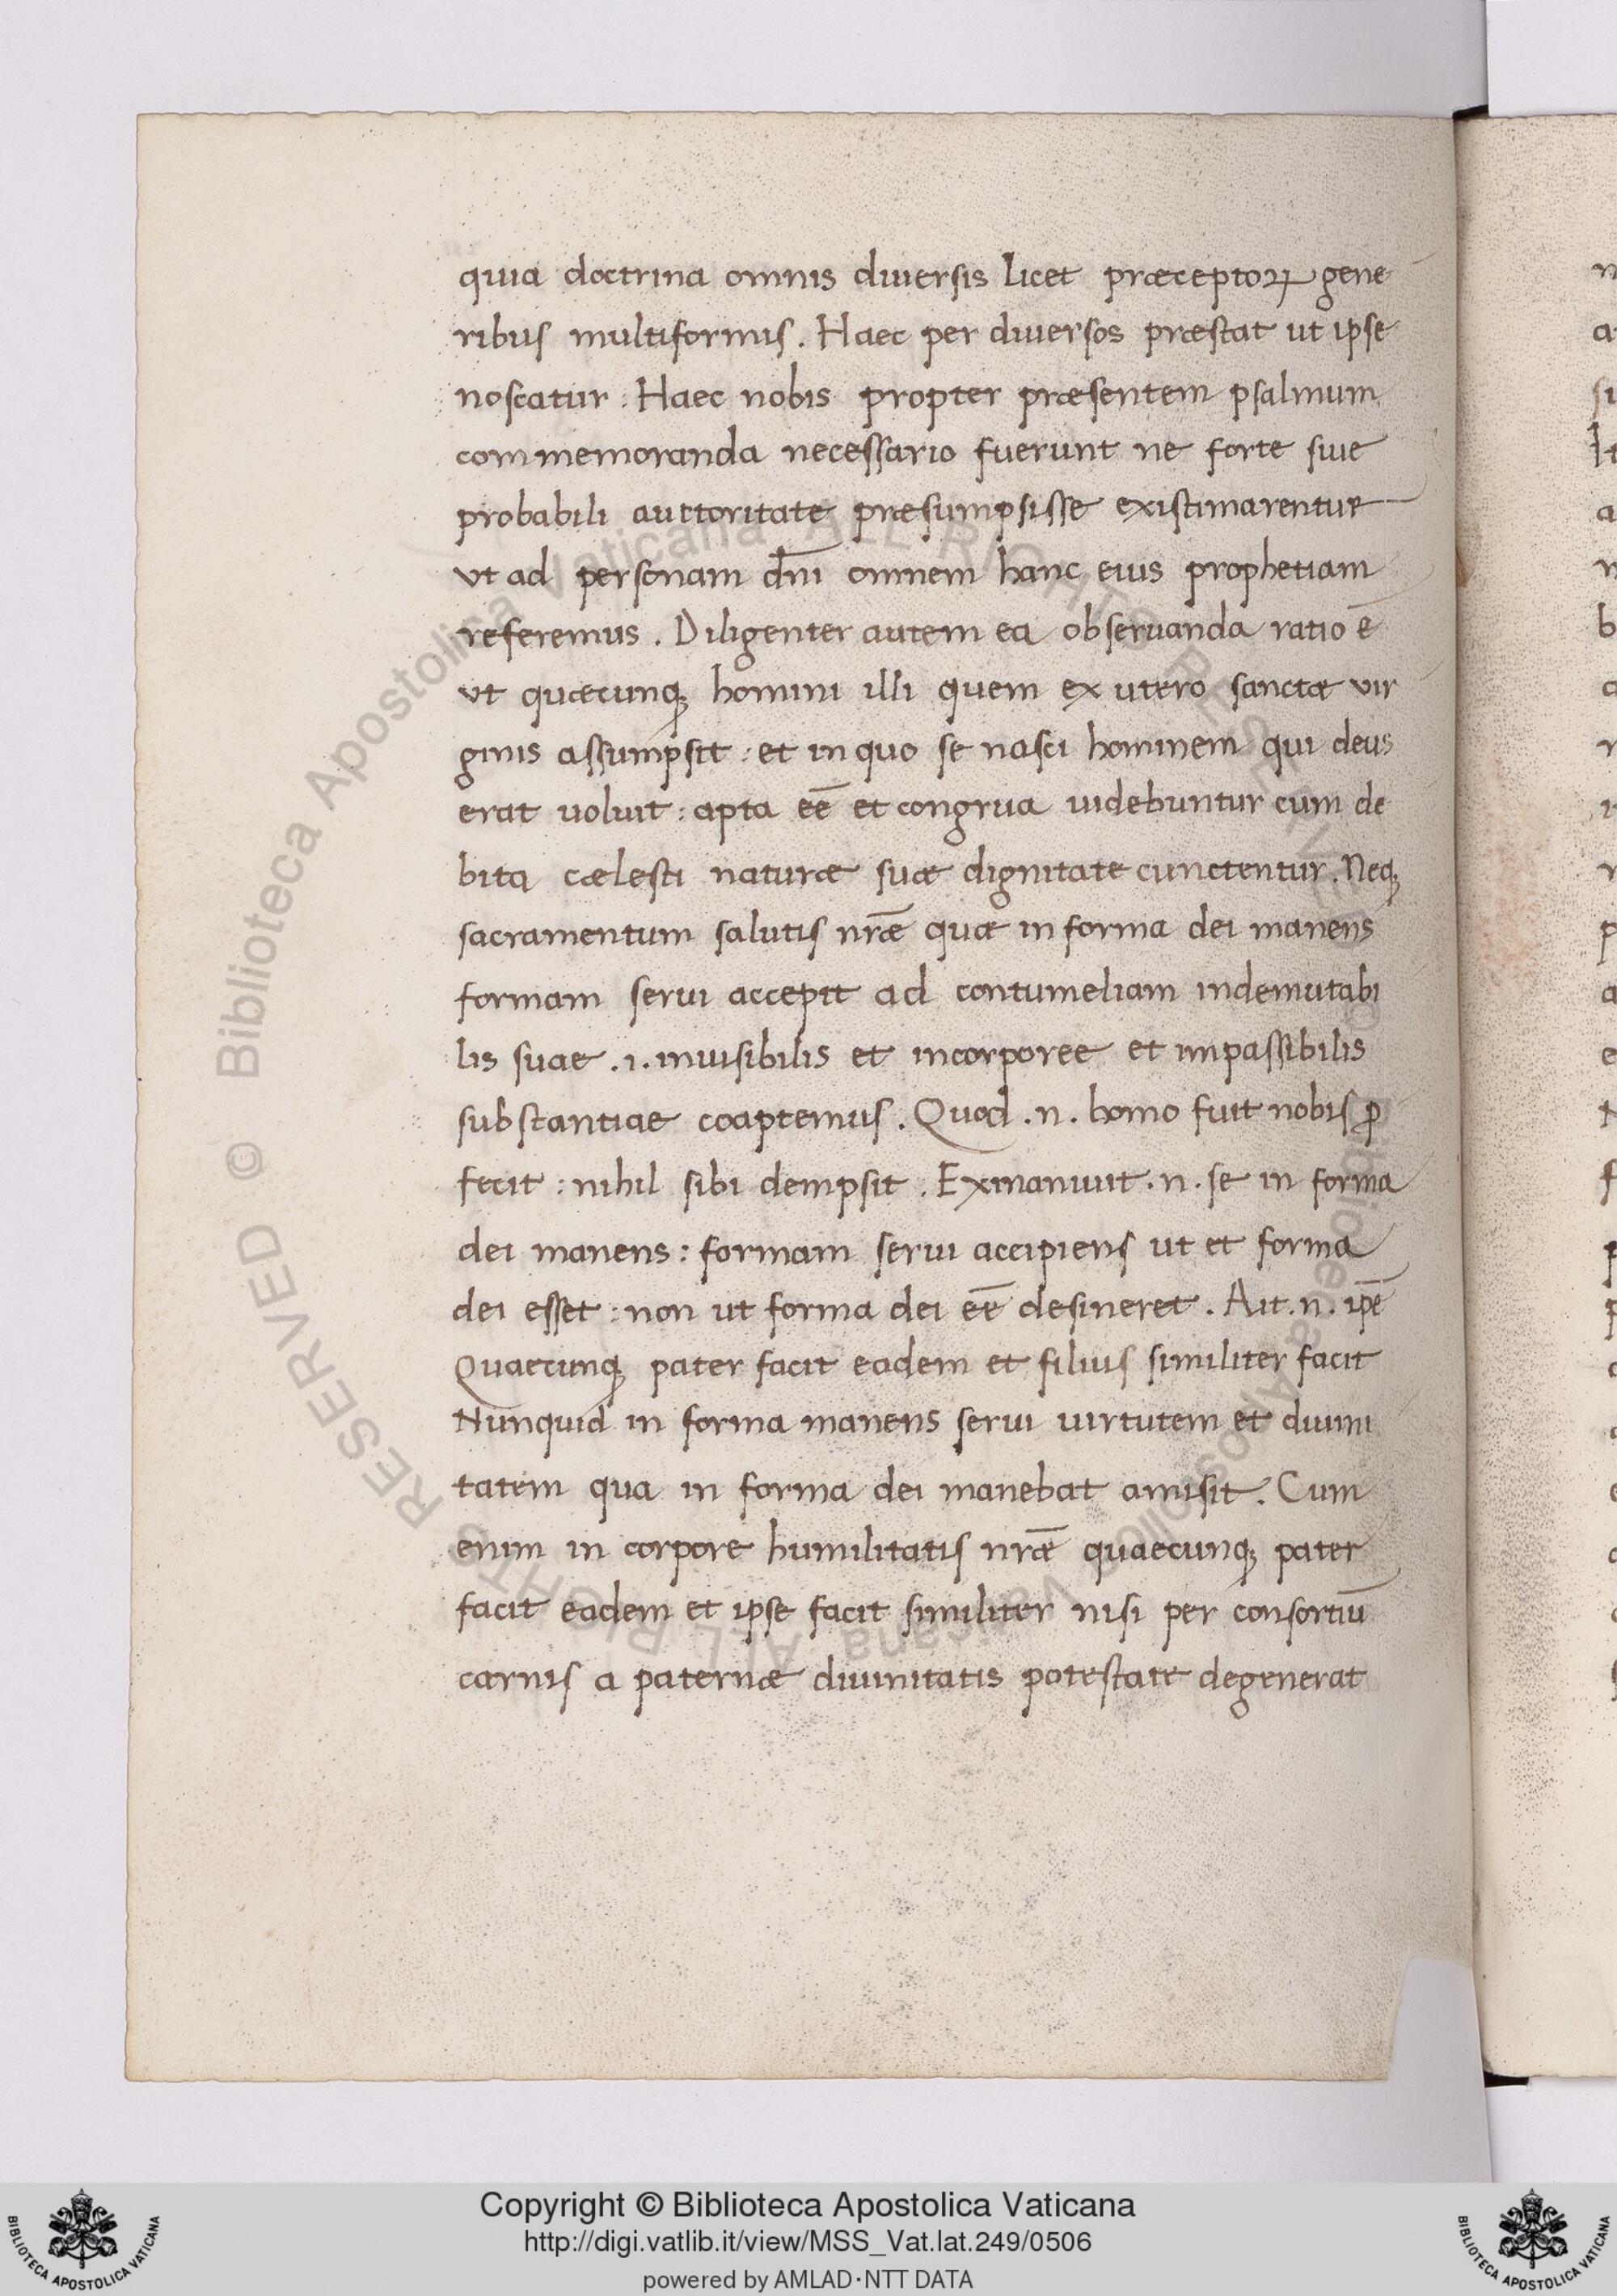 quia doctrina omnis diuersis licet præceptoꝝ gene
ribus multiformis. Haec per diuersos præstat ut ipse
noscatur. Haec nobis propter præsentem psalmum
commemoranda necessario fuerunt ne forte siue
probabili auctoritate præsumpsisse existimarentur
vt ad personam dn̄i omnem hanc eius prophetiam
referemus. Diligenter autem ea obseruanda ratio ē
vt quæcunqꝫ homini illi quem ex utero sanctæ vir
ginis assumpsit: et in quo se nasci hominem qui deus
erat uoluit: apta eē et congrua uidebuntur cum de
bita cælesti naturæ suæ dignitate cunctentur. Neqꝫ
sacramentum salutis nr̄æ quæ in forma dei manens
formam serui accepit ad contumeliam indemutabi
lis suae .i. inuisibilis et incorporee et impassibilis
substantiae coaptemus. Quod .n. homo fuit nobis ꝓ
fecit: nihil sibi dempsit. Exinaniuit .n. se in forma
dei manens: formam serui accipiens ut et forma
dei esset: non ut forma dei eē desineret. Ait .n. ip̄e
Quaecunqꝫ pater facit eadem et filius similiter facit
Nunquid in forma manens serui uirtutem et diuini
tatem qua in forma dei manebat amisit. Cum
enim in corpore humilitatis nr̄æ quaecunqꝫ pater
facit eadem et ipse facit similiter nisi per consortiū
carnis a paternæ diuinitatis potestate degenerat
Biblioteca Apostolica Vaticana ALL RIGHTS RESERVED ©
Copyright © Biblioteca Apostolica Vaticana
http://digi.vatlib.it/view/MSS_Vat.lat.249/0506
powered by AMLAD·NTT DATA
BIBLIOTECA APOSTOLICA VATICANA
BIBLIOTECA APOSTOLICA VATICANA